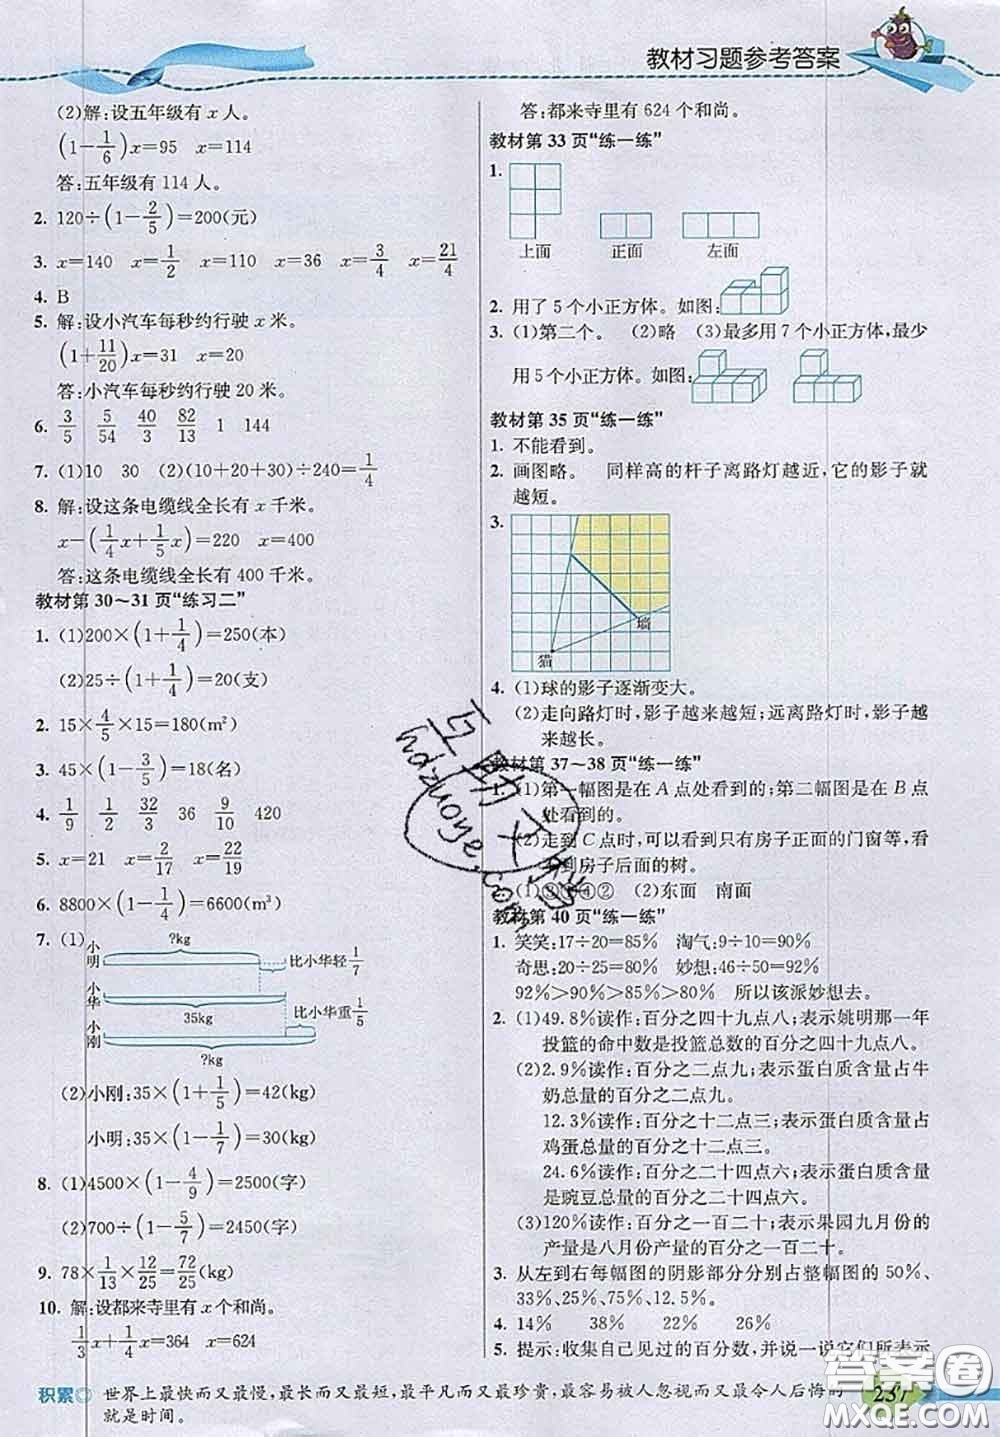 教材习题参考答案
(2)解:设五年级有 x 人。
(1-1/6)x=95 x=114
答:五年级有 114 人。
2. 120÷(1-2/5)=200(元)
3. x=140 x=1/2 x=110 x=36 x=3/4 x=21/4
4. B
5. 解:设小汽车每秒约行驶 x 米。
(1+11/20)x=31 x=20
答:小汽车每秒约行驶 20 米。
6. 3/5 5/54 40/3 82/13 1 144
7. (1)10 30 (2)(10+20+30)÷240=1/4
8. 解:设这条电缆线全长有 x 千米。
x-(1/4x+1/5x)=220 x=400
答:这条电缆线全长有 400 千米。
教材第 30～31 页“练习二”
1. (1)200×(1+1/4)=250(本)
(2)25÷(1+1/4)=20(支)
2. 15×4/5×15=180(m²)
3. 45×(1-3/5)=18(名)
4. 1/9 1/2 32/3 36 9/10 420
5. x=21 x=2/17 x=22/19
6. 8800×(1-1/4)=6600(m³)
7. (1)
小明 ?kg 比小华轻1/7
小华 35kg 比小华重1/5
小刚 ?kg
(2)小刚:35×(1+1/5)=42(kg)
小明:35×(1-1/7)=30(kg)
8. (1)4500×(1-4/9)=2500(字)
(2)700÷(1-5/7)=2450(字)
9. 78×1/13×12/25=72/25(kg)
10. 解:设都来寺里有 x 个和尚。
1/3x+1/4x=364 x=624
答:都来寺里有 624 个和尚。
教材第 33 页“练一练”
1.
上面 正面 左面
2. 用了 5 个小正方体。如图:
3. (1)第二个。 (2)略 (3)最多用 7 个小正方体,最少
用 5 个小正方体。如图:
教材第 35 页“练一练”
1. 不能看到。
2. 画图略。 同样高的杆子离路灯越近,它的影子就
越短。
3.
墙
猫
4. (1)球的影子逐渐变大。
(2)走向路灯时,影子越来越短;远离路灯时,影子越
来越长。
教材第 37～38 页“练一练”
1. (1)第一幅图是在 A 点处看到的;第二幅图是在 B 点
处看到的。
(2)走到 C 点时,可以看到房子正面的门窗等,看
不到房子后面的树。
(1)③①④② (2)东面 南面
教材第 40 页“练一练”
1. 笑笑:17÷20=85% 淘气:9÷10=90%
奇思:20÷25=80% 妙想:46÷50=92%
92%>90%>85%>80% 所以该派妙想去。
2. (1)49.8%读作:百分之四十九点八;表示姚明那一年
投篮的命中数是投篮总数的百分之四十九点八。
(2)2.9%读作:百分之二点九;表示蛋白质含量占牛
奶总量的百分之二点九。
12.3%读作:百分之十二点三;表示蛋白质含量占
鸡蛋总量的百分之十二点三。
24.6%读作:百分之二十四点六;表示蛋白质含量
是豌豆总量的百分之二十四点六。
(3)120%读作:百分之一百二十;表示果园九月份的
产量是八月份产量的百分之一百二十。
3. 从左到右每幅图的阴影部分分别占整幅图的 50%、
33%、25%、75%、12.5%。
4. 14% 38% 22% 86%
5. 提示:收集自己见过的百分数,并说一说它们所表示
积累◎ 世界上最快而又最慢,最长而又最短,最平凡而又最珍贵,最容易被人忽视而又最令人后悔的
就是时间。
237
互助文档
hdzuoye.com
答案圈
MXQE.COM